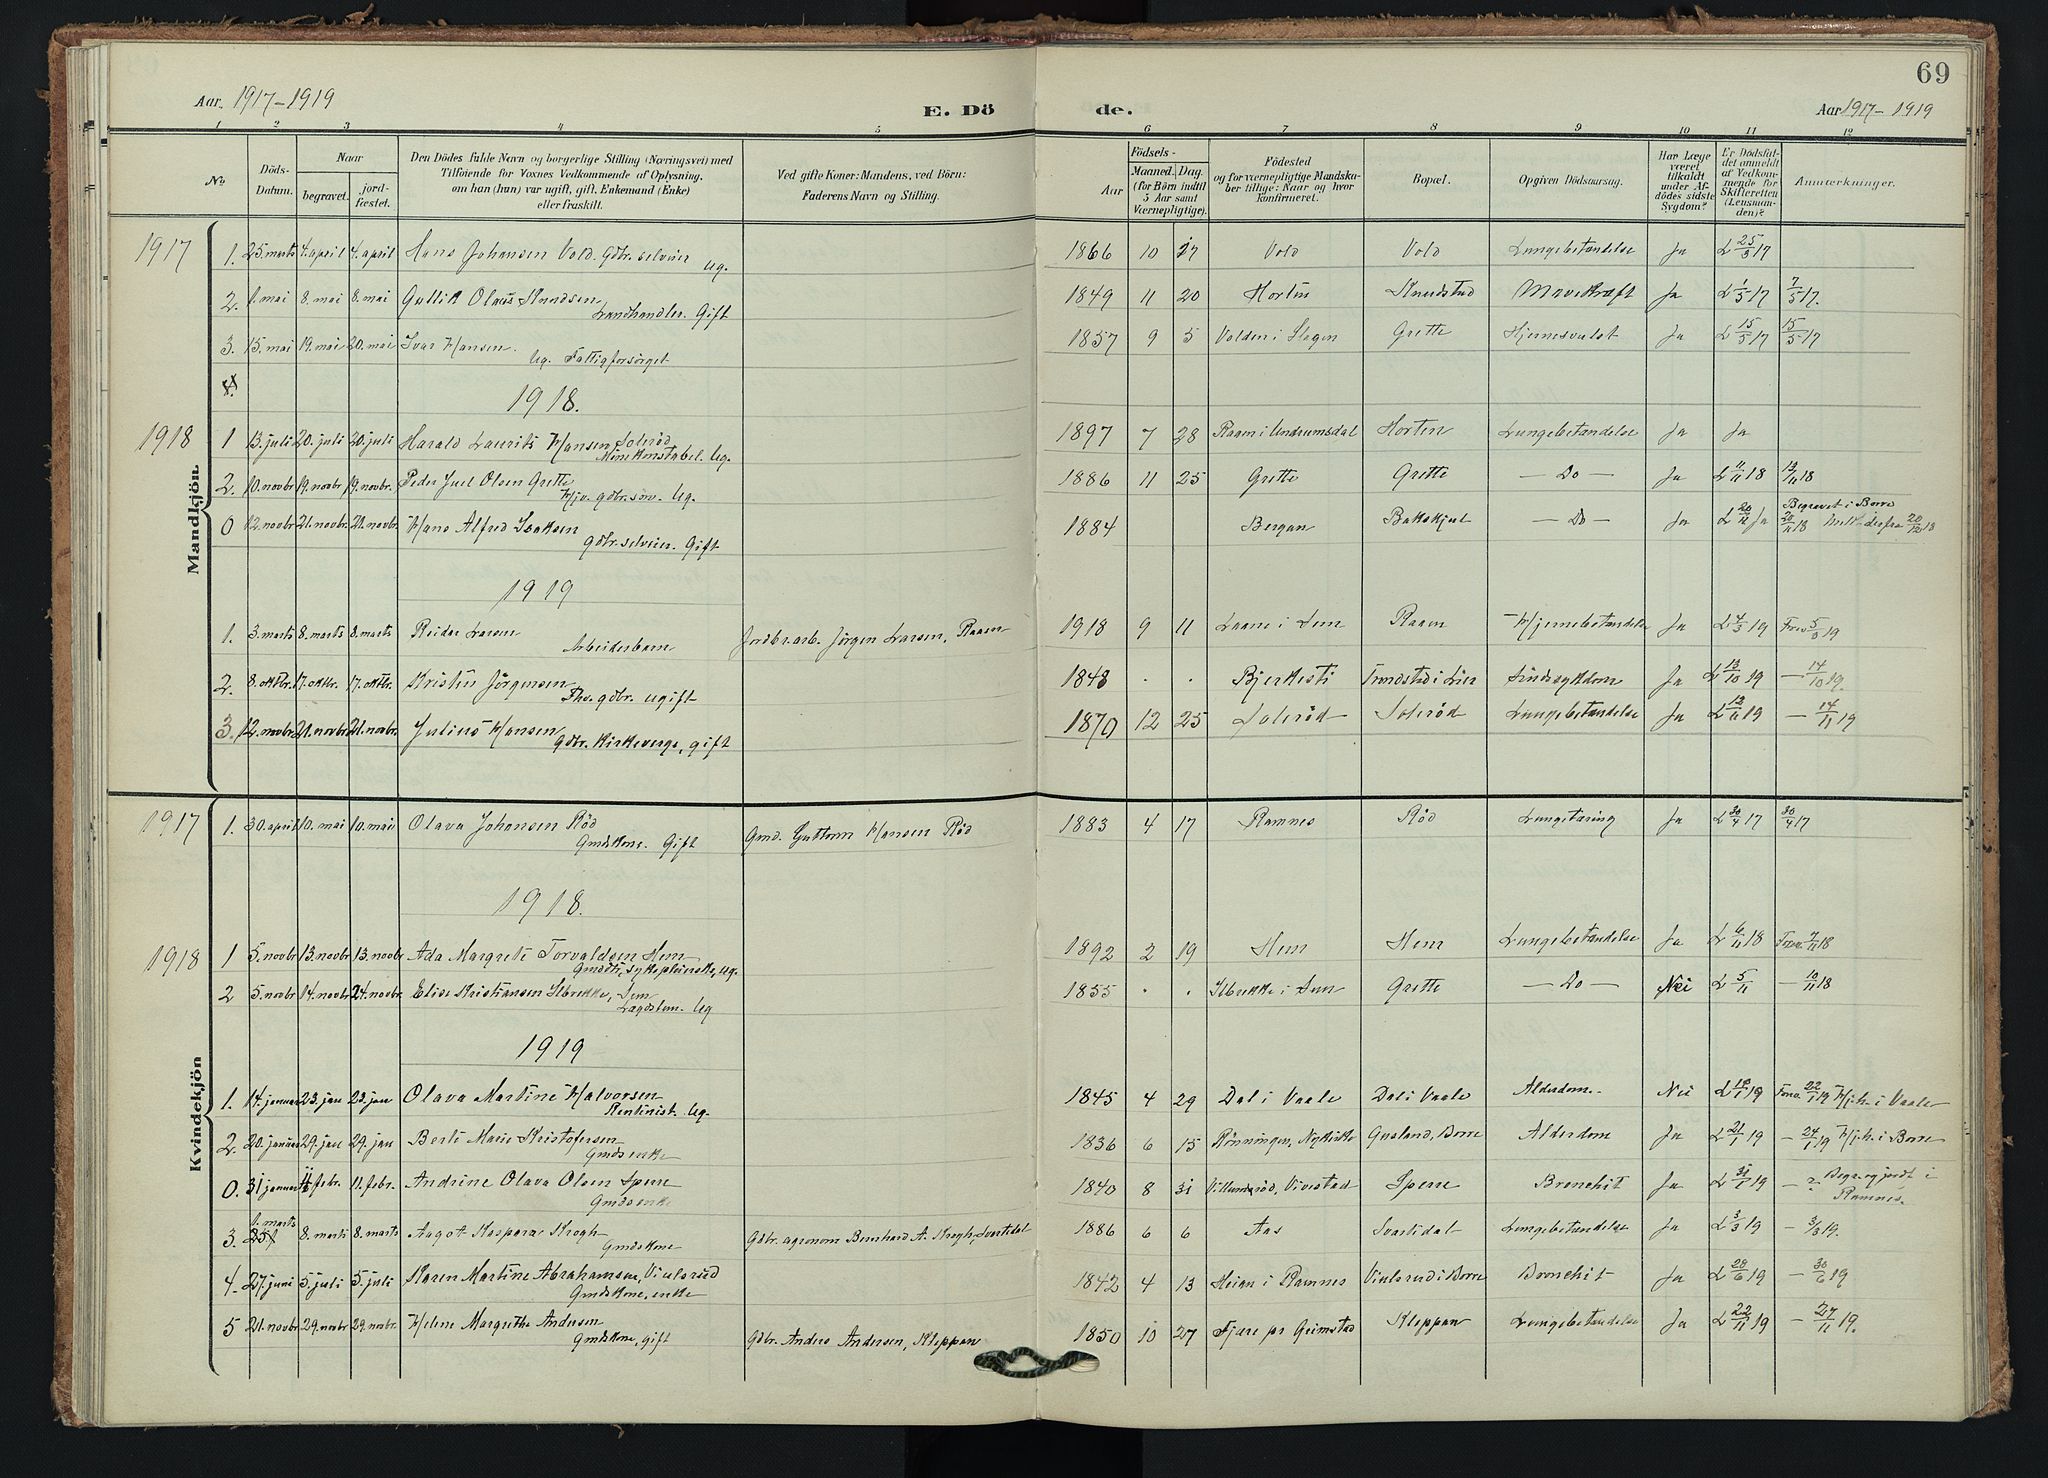 69
Aar. 1917-1919
E. Dö
de.
Aar 1917-1919
1 2 3 4 5 6 7 8 9 10 11 12
No
Döds-Datum.
Naar
begravet.
jord-fæstet.
Den Dödes fulde Navn og borgerlige Stilling (Næringsvei) med
Tilföiende for Voxnes Vedkommende af Oplysning,
om han (hun) var ugift, gift, Enkemand (Enke)
eller fraskilt.
Ved gifte Koner: Mandens, ved Börn:
Faderens Navn og Stilling.
Födsels-
Aar
Maaned. Dag.
(for Börn indtil
5 Aar samt
Værnepligtige).
Födested
og for værnepligtige Mandska-
ber tillige: Naar og hvor
konfirmeret.
Bopæl.
Opgiven Dödsaarsag.
Har Læge
været
tilkaldt
under Af-
dödes sidste
Sygdom?
Er Dödsfal-
det anmeldt
af Vedkom-
mende for
Skifteretten
(Lensman-
den)?
Anmærkninger.
Mandkjön.
1917
1. 25. marts 4. april 4. april Hans Johansen Vold. Gdbr. selveier Ug. 1866 10 27 Vold Vold Lungebetændelse Ja L 25/3 17
2. 1. mai 8. mai 8. mai Gullik Olaus Knudsen Landhandler. Gift 1849 11 20 Horten Knudstad Mavekræft Ja L 1/5 17 7/5 17.
3. 15. mai 19. mai 20. mai Ivar Hansen. Ug. Fattigforsörget 1857 9 5 Volden i Slagen Grette Hjernesvulst Ja L 15/5 17 15/5 17
1918.
1918
1 13. juli 20. juli 20. juli Harald Laurits Hansen Solerød Minekonstabel. Ug. 1897 7 28 Raaen i Undrumsdal Horten Lungebetændelse Ja Ja
2. 10. novbr 19. novbr 19. novbr. Peder Juel Olsen Grette Hjv. gdbr. søn. Ug. 1886 11 25 Grette Grette — Do — Ja L 11/11 18 12/11 18
0 12. novbr 21. novbr. 21. novbr. Hans Alfred Isaksen Gdbr. selveier. Gift 1884 Bergan Bakskjul — Do — Ja L 20/11 Ja 20/11 18 Begravet i Borre Meld. derfra 20/12 18
1919
1. 3. marts 8. marts 8. marts Reidar Larsen Arbeiderbarn Jordbr. arb. Jörgen Larsen, Raaen 1918 9 11 Laane i Sem Raaen Hjernebetændelse Ja L 4/3 19 Frev 5/3 19
2. 8. oktbr. 17. oktbr. 17. oktbr. Kristen Jörgensen Fhv. gdbr. ugift 1848 . . Bjerkesti Trondstad i Lier Sindssykdom Ja L 13/10 19 — 14/10 19.
3. 12. novbr 21. novbr 21. novbr. Julius Hansen Gdbr. Kirkeverge, gift 1870 12 25 Solerød Solerød Lungebetændelse Ja L 13/11 19 — 14/11 19
Kvindekjön
1917
1. 30. april 10. mai 10. mai Olava Johansen Rød Gmdskone. Gift Gmd. Guttorm Hansen Rød 1883 4 17 Ramnes Rød Lungetæring Ja L 30/4 17 30/4 17
1918.
1918
1 5. novbr 13. novbr 13. novbr Ada Margrete Torvaldsen Hem Gmdstr, sykepleierske, Ug. 1892 2 19 Hem Hem Lungebetændelse Ja L 6/11 18 7/11 18
2 5. novbr 14. novbr 24. novbr. Elise Kristiansen Ilbrekke, Sem Lægdslem. Ug 1855 . . Ilbrekke i Sem Grette — Do — Nei L 5/11 — 10/11 18
1919
1. 14. januar 23. jan 23. jan Olava Martine Halvorsen Rentenist. Ug. 1845 4 29 Dal i Vaale Dal i Vaale Alderdom. Nei L 18/1 19 22/1 19 Hj.h. i Vaale
2. 20. januar 29. jan 29. jan Berte Marie Kristofersen Gmdsenke 1836 6 15 Rönningen, Nykirke Gusland, Borre Alderdom Ja L 21/1 19 — 24/1 19 Hj.h. i Borre
0. 31 januar febr. 11. febr. Andrine Olava Olsen Sperre Gmdsenke 1840 8 31 Villumsrød, Vivestad Sperre Bronchit Ja L 31/1 19 — ? Begr. og jordf. i Ramnes.
3. 1. marts 8. marts 8. marts Aagot Kaspara Krogh Gmdskone Gdbr. agronom Bernhard A. Krogh, Svartdal 1886 6 6 Aas Svartsdal Lungebetændelse Ja L 3/3 19 — 3/3 19.
4 27. juni 5. juli 5. juli Karen Martine Abrahamsen, Viulsrud Gmdskone, enke 1842 4 13 Heian i Ramnes Viulsrud i Borre Bronchit Ja L 28/6 19 — 30/6 19
5 21. novbr 29. novbr 29. novbr Helene Margrethe Andersen Gmdskone, gift Gdbr. Anders Andersen, Kleppan 1850 10 27 Fjære pr Grimstad Kleppan Lungebetændelse Ja L 22/11 19 — 27/11 19.